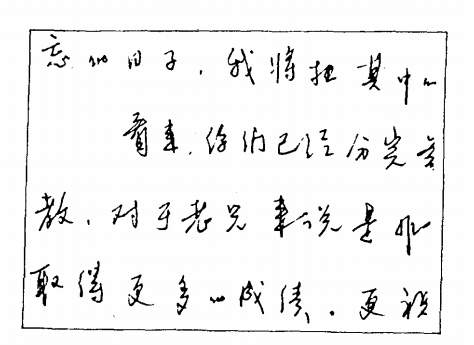 忘的日子,我将把其中心
看来,你们已经分完言
教,对于老兄来说是非
取得更多的成绩。更祝